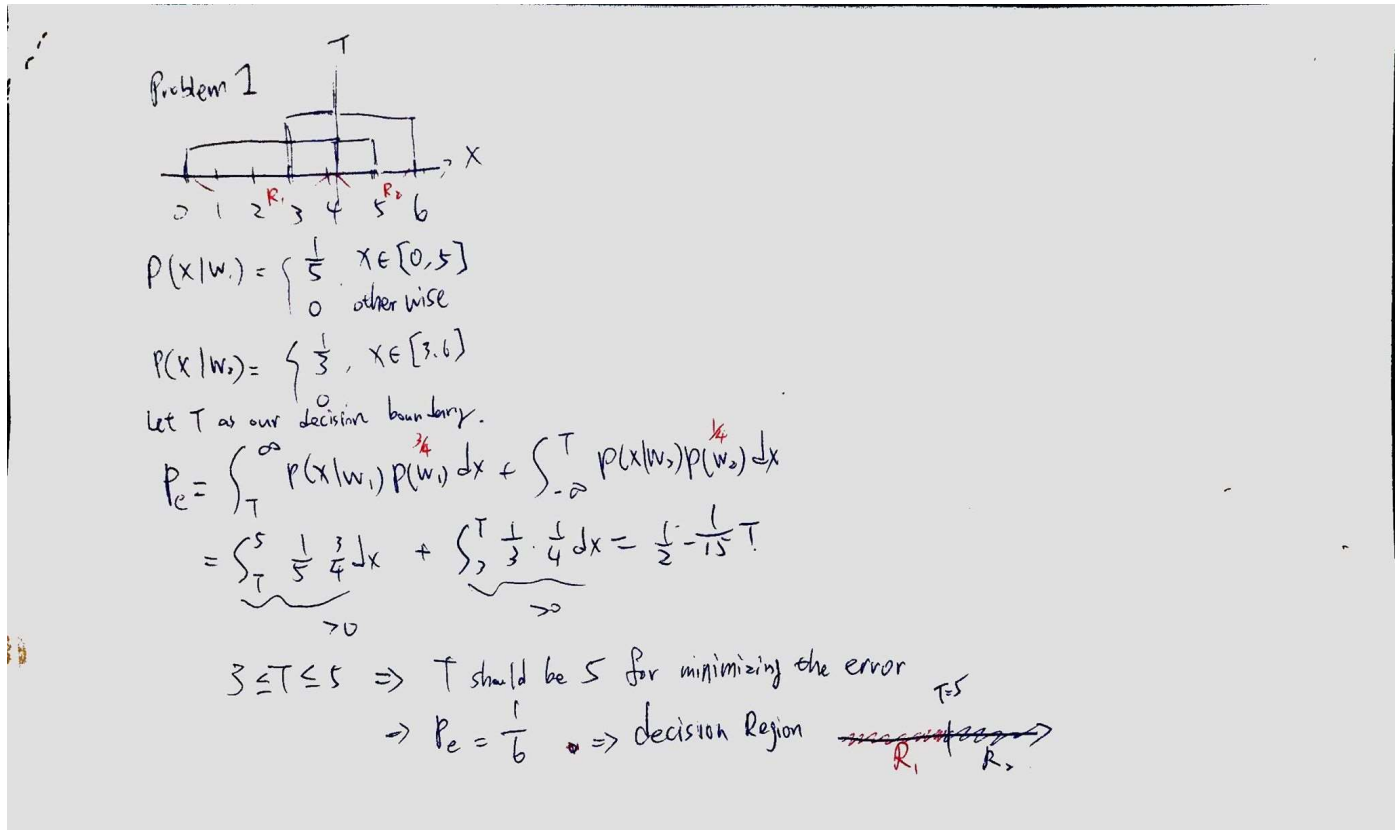 T
Problem 1
X
R₁ R₂
0 1 2 3 4 5 6
P(X|W₁) = { 1/5 X∈[0,5]
0 otherwise
P(X|W₂) = { 1/3, X∈[3.6]
0
Let T as our decision boundary.
3/4 1/4
Pe = ∫_T^∞ P(X|W₁)P(W₁)dx + ∫_{-∞}^T P(X|W₂)P(W₂)dx
= ∫_T^5 1/5 3/4 dx + ∫_3^T 1/3 · 1/4 dx = 1/2 - 1/15 T
>0 >0
3≤T≤5 ⇒ T should be 5 for minimizing the error
T=5
→ Pe = 1/6 . ⇒ decision Region
R₁ R₂